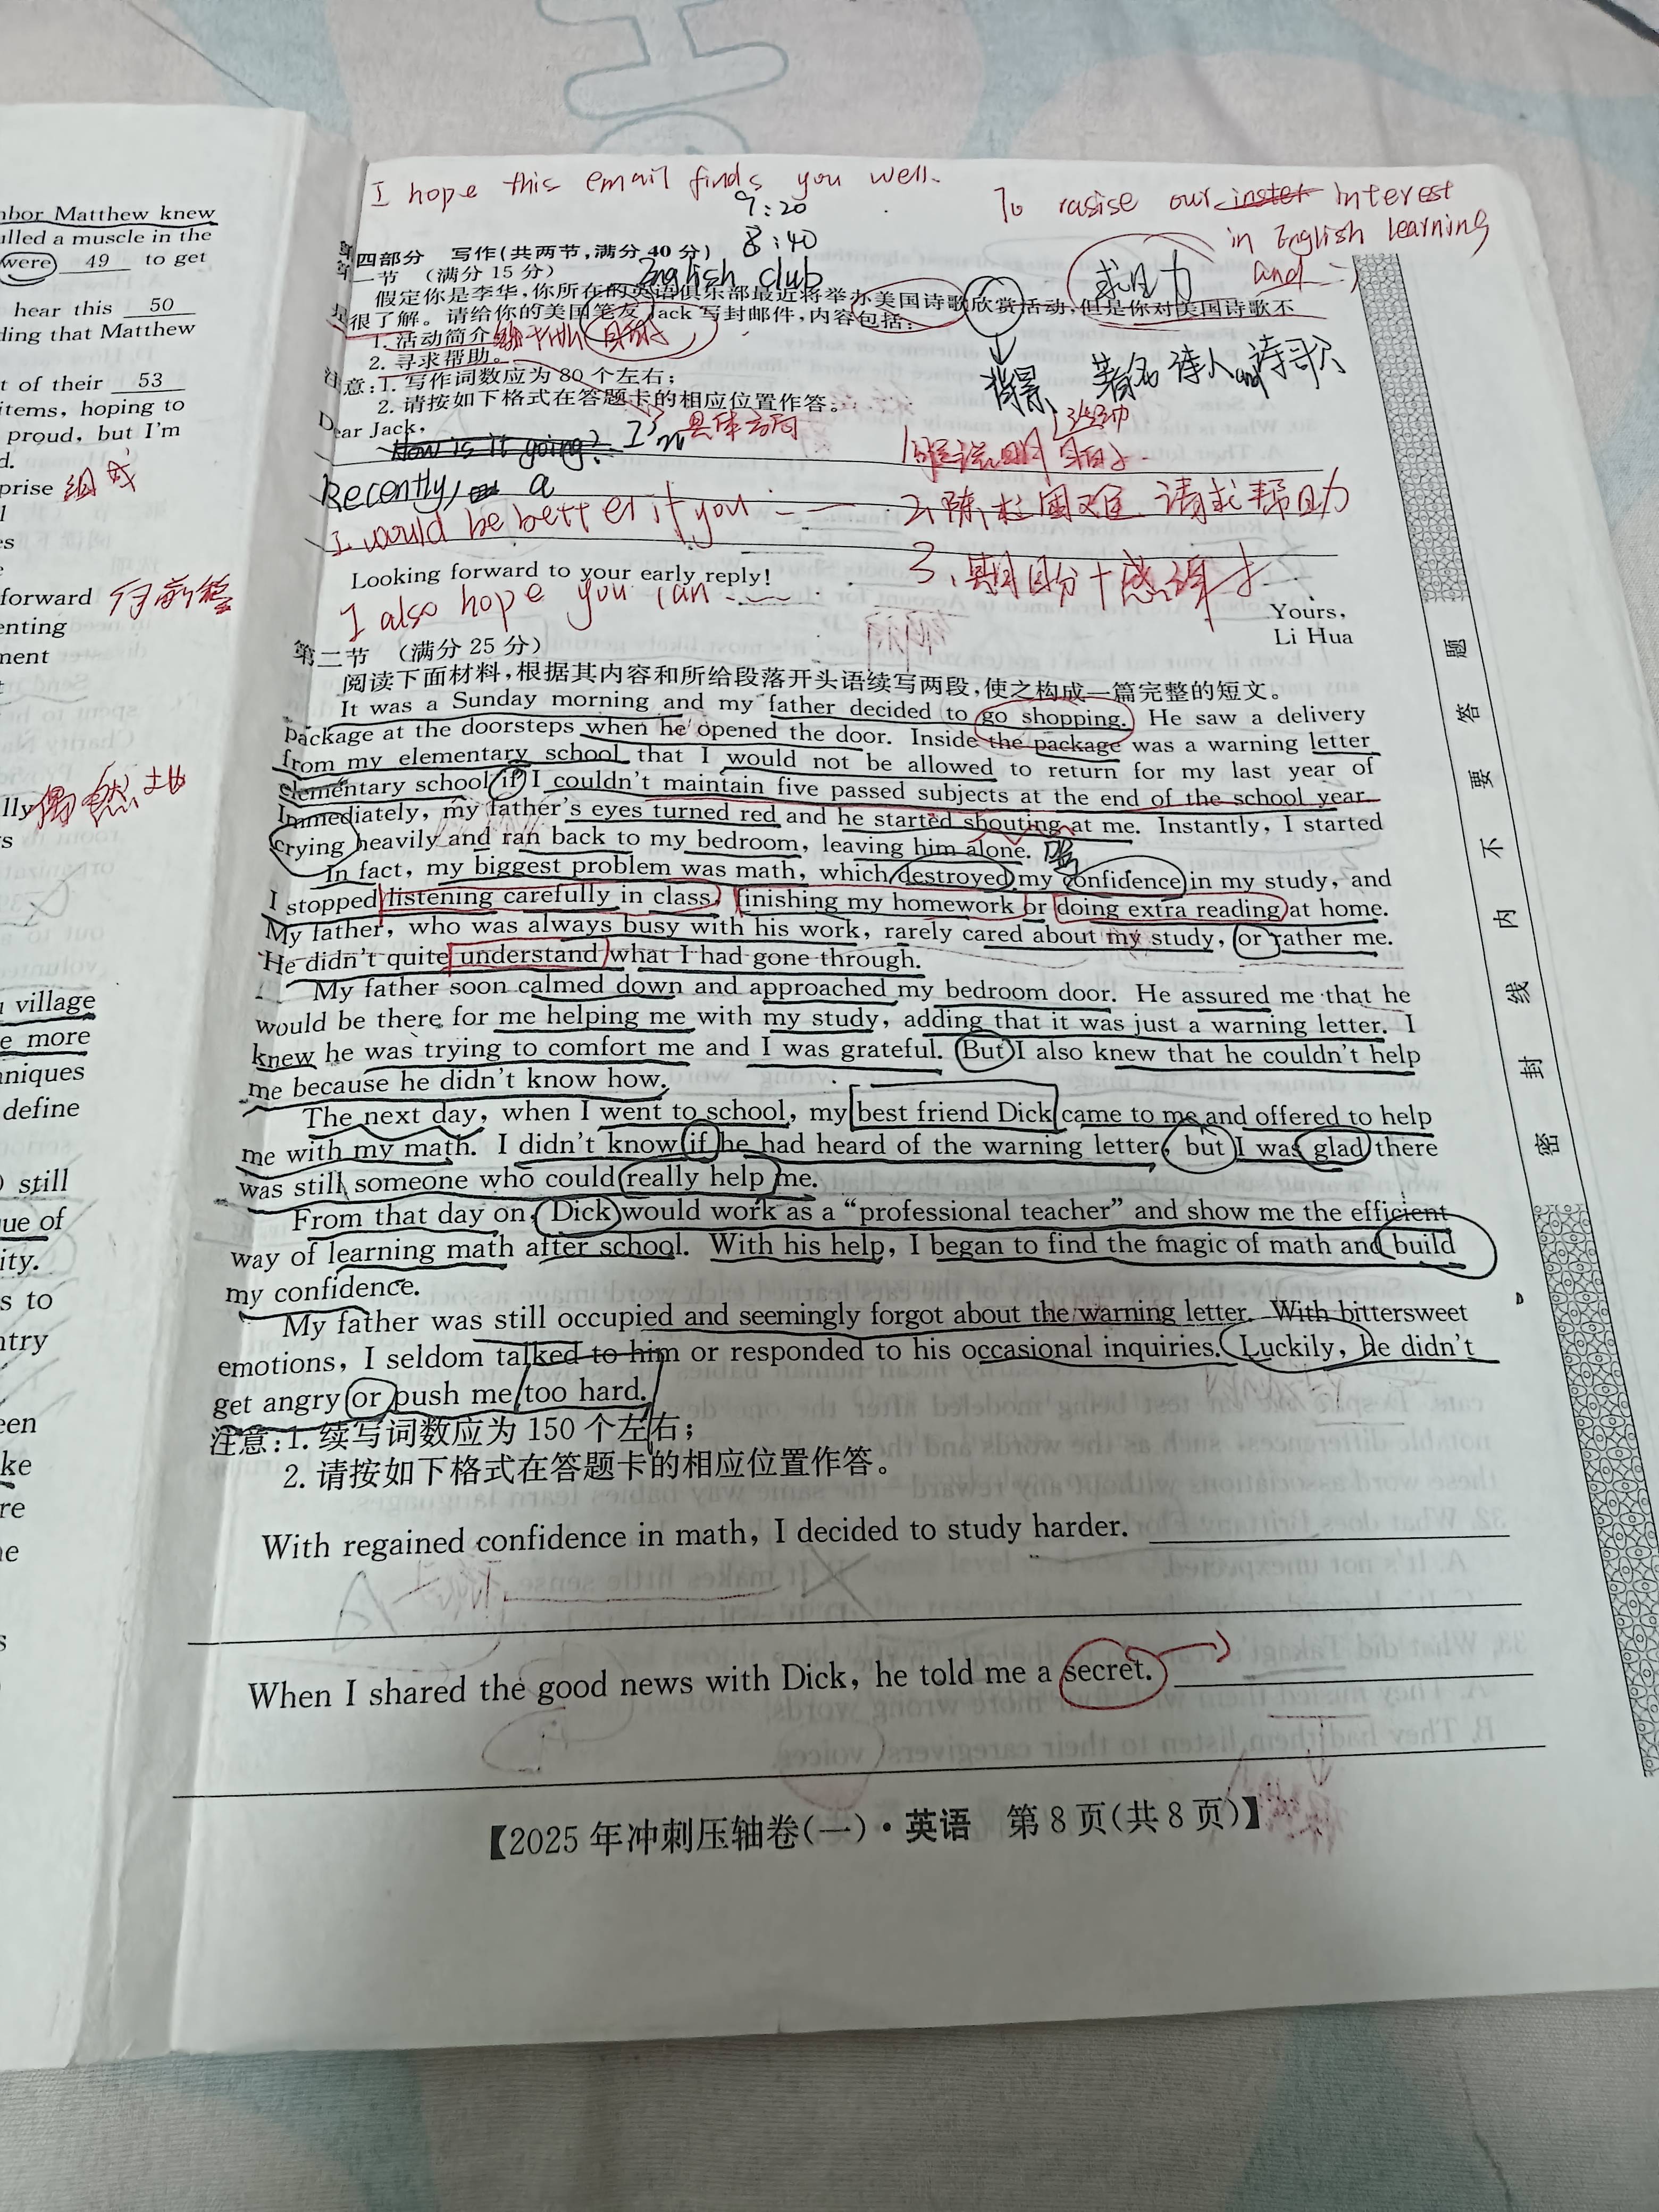 I hope this email finds you well.
9:20
8:40
To rasise our inster Interest
in English learning
and
求助
English club
第四部分 写作(共两节,满分 40 分)
第一节 (满分 15 分)
假定你是李华,你所在的英语俱乐部最近将举办美国诗歌欣赏活动,但是你对美国诗歌不
是很了解。请给你的美国笔友 Jack 写封邮件,内容包括:
1. 活动简介
2. 寻求帮助。
注意:1. 写作词数应为 80 个左右;
2. 请按如下格式在答题卡的相应位置作答。
背景 著名诗人and诗歌
Dear Jack,
How is it going? I'm
具体方向
Recently, a
I would be better if you
2、陈述困难、请求帮助
3、期盼+感谢
Looking forward to your early reply!
I also hope you can
Yours,
Li Hua
第二节 (满分 25 分)
阅读下面材料,根据其内容和所给段落开头语续写两段,使之构成一篇完整的短文。
It was a Sunday morning and my father decided to go shopping. He saw a delivery
package at the doorsteps when he opened the door. Inside the package was a warning letter
from my elementary school that I would not be allowed to return for my last year of
elementary school if I couldn't maintain five passed subjects at the end of the school year.
Immediately, my father's eyes turned red and he started shouting at me. Instantly, I started
crying heavily and ran back to my bedroom, leaving him alone.
In fact, my biggest problem was math, which destroyed my confidence in my study, and
I stopped listening carefully in class, finishing my homework or doing extra reading at home.
My father, who was always busy with his work, rarely cared about my study, or rather me.
He didn't quite understand what I had gone through.
My father soon calmed down and approached my bedroom door. He assured me that he
would be there for me helping me with my study, adding that it was just a warning letter. I
knew he was trying to comfort me and I was grateful. But I also knew that he couldn't help
me because he didn't know how.
The next day, when I went to school, my best friend Dick came to me and offered to help
me with my math. I didn't know if he had heard of the warning letter, but I was glad there
was still someone who could really help me.
From that day on, Dick would work as a "professional teacher" and show me the efficient
way of learning math after school. With his help, I began to find the magic of math and build
my confidence.
My father was still occupied and seemingly forgot about the warning letter. With bittersweet
emotions, I seldom talked to him or responded to his occasional inquiries. Luckily, he didn't
get angry or push me too hard.
注意:1. 续写词数应为 150 个左右;
2. 请按如下格式在答题卡的相应位置作答。
With regained confidence in math, I decided to study harder.
When I shared the good news with Dick, he told me a secret.
【2025 年冲刺压轴卷(一)·英语 第 8 页(共 8 页)】
密 封 线 内 不 要 答 题
nbor Matthew knew
ulled a muscle in the
were 49 to get
hear this 50
ding that Matthew
t of their 53
items, hoping to
proud, but I'm
d.
prise 组成
forward
enting
ment
lly 偶然地
village
e more
niques
define
) still
ue of
ity.
s to
ntry
een
ke
re